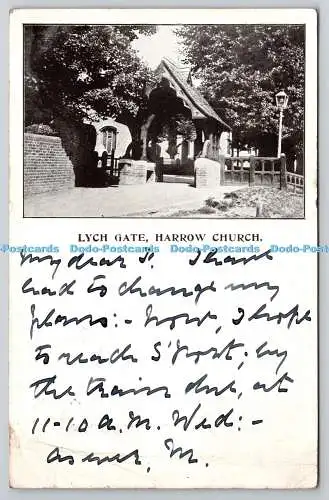 LYCH GATE, HARROW CHURCH.
Dodo-Postcards Dodo-Postcards Dodo-Postcards Dodo-Postcards
My dear I have
had to change my
plans:- Now, I hope
to reach S'port, by
the train due, at
11-10 a.m. Wed:-
as ever, M.